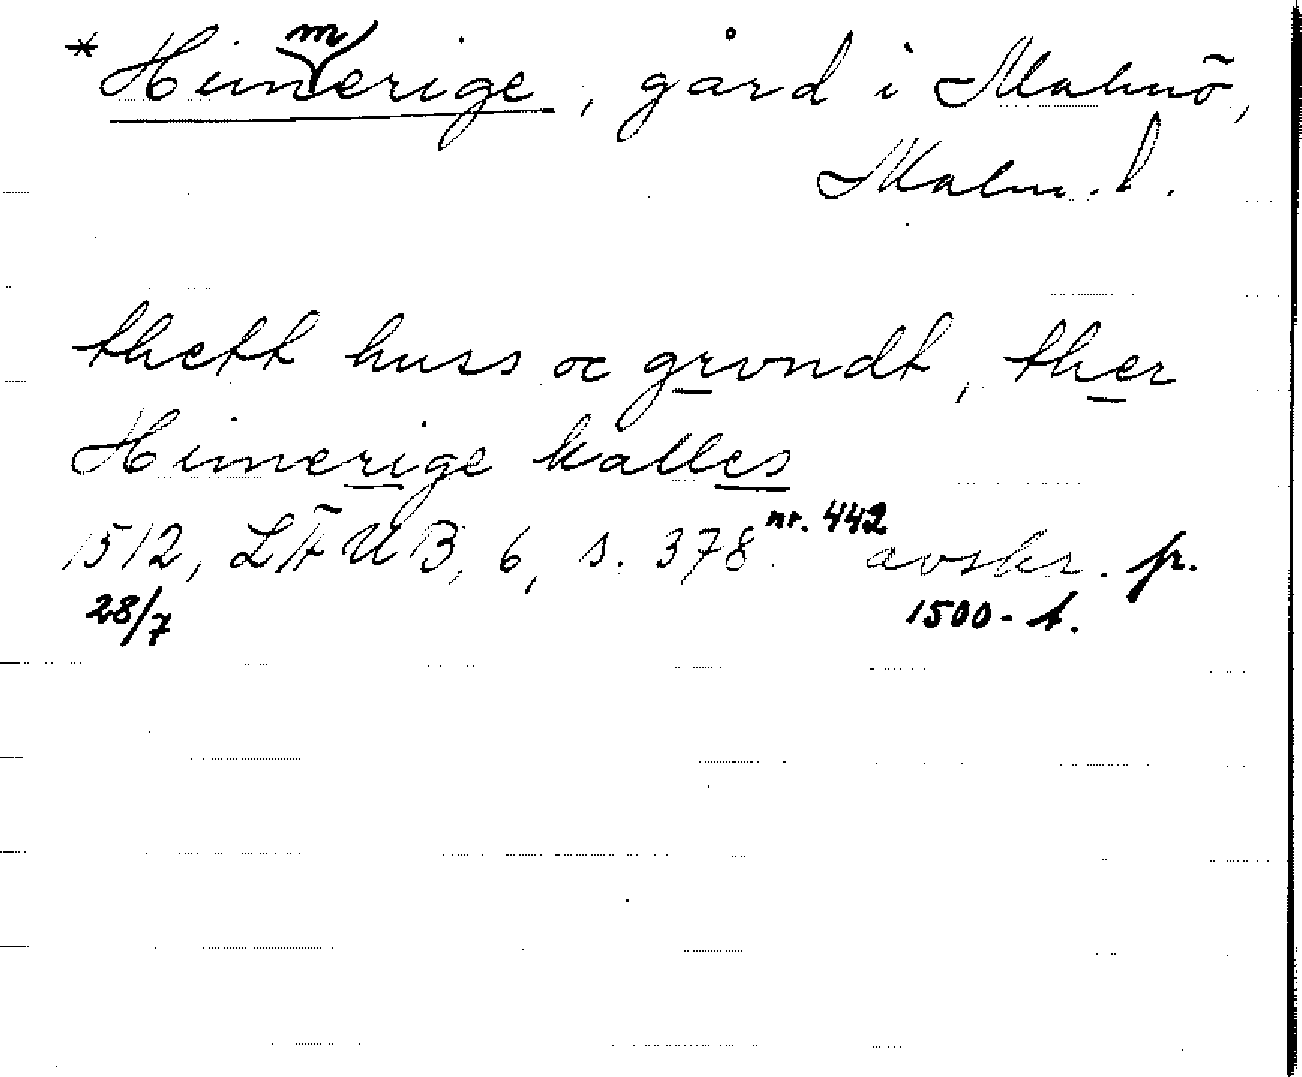 *Himmerige, gård i Malmö,
Malm. l.
thett huss oc grvndt, ther
Himerige kalles
1512, LÄUB, 6, s. 378. nr. 442 avskr. fr.
28/7 1500-t.